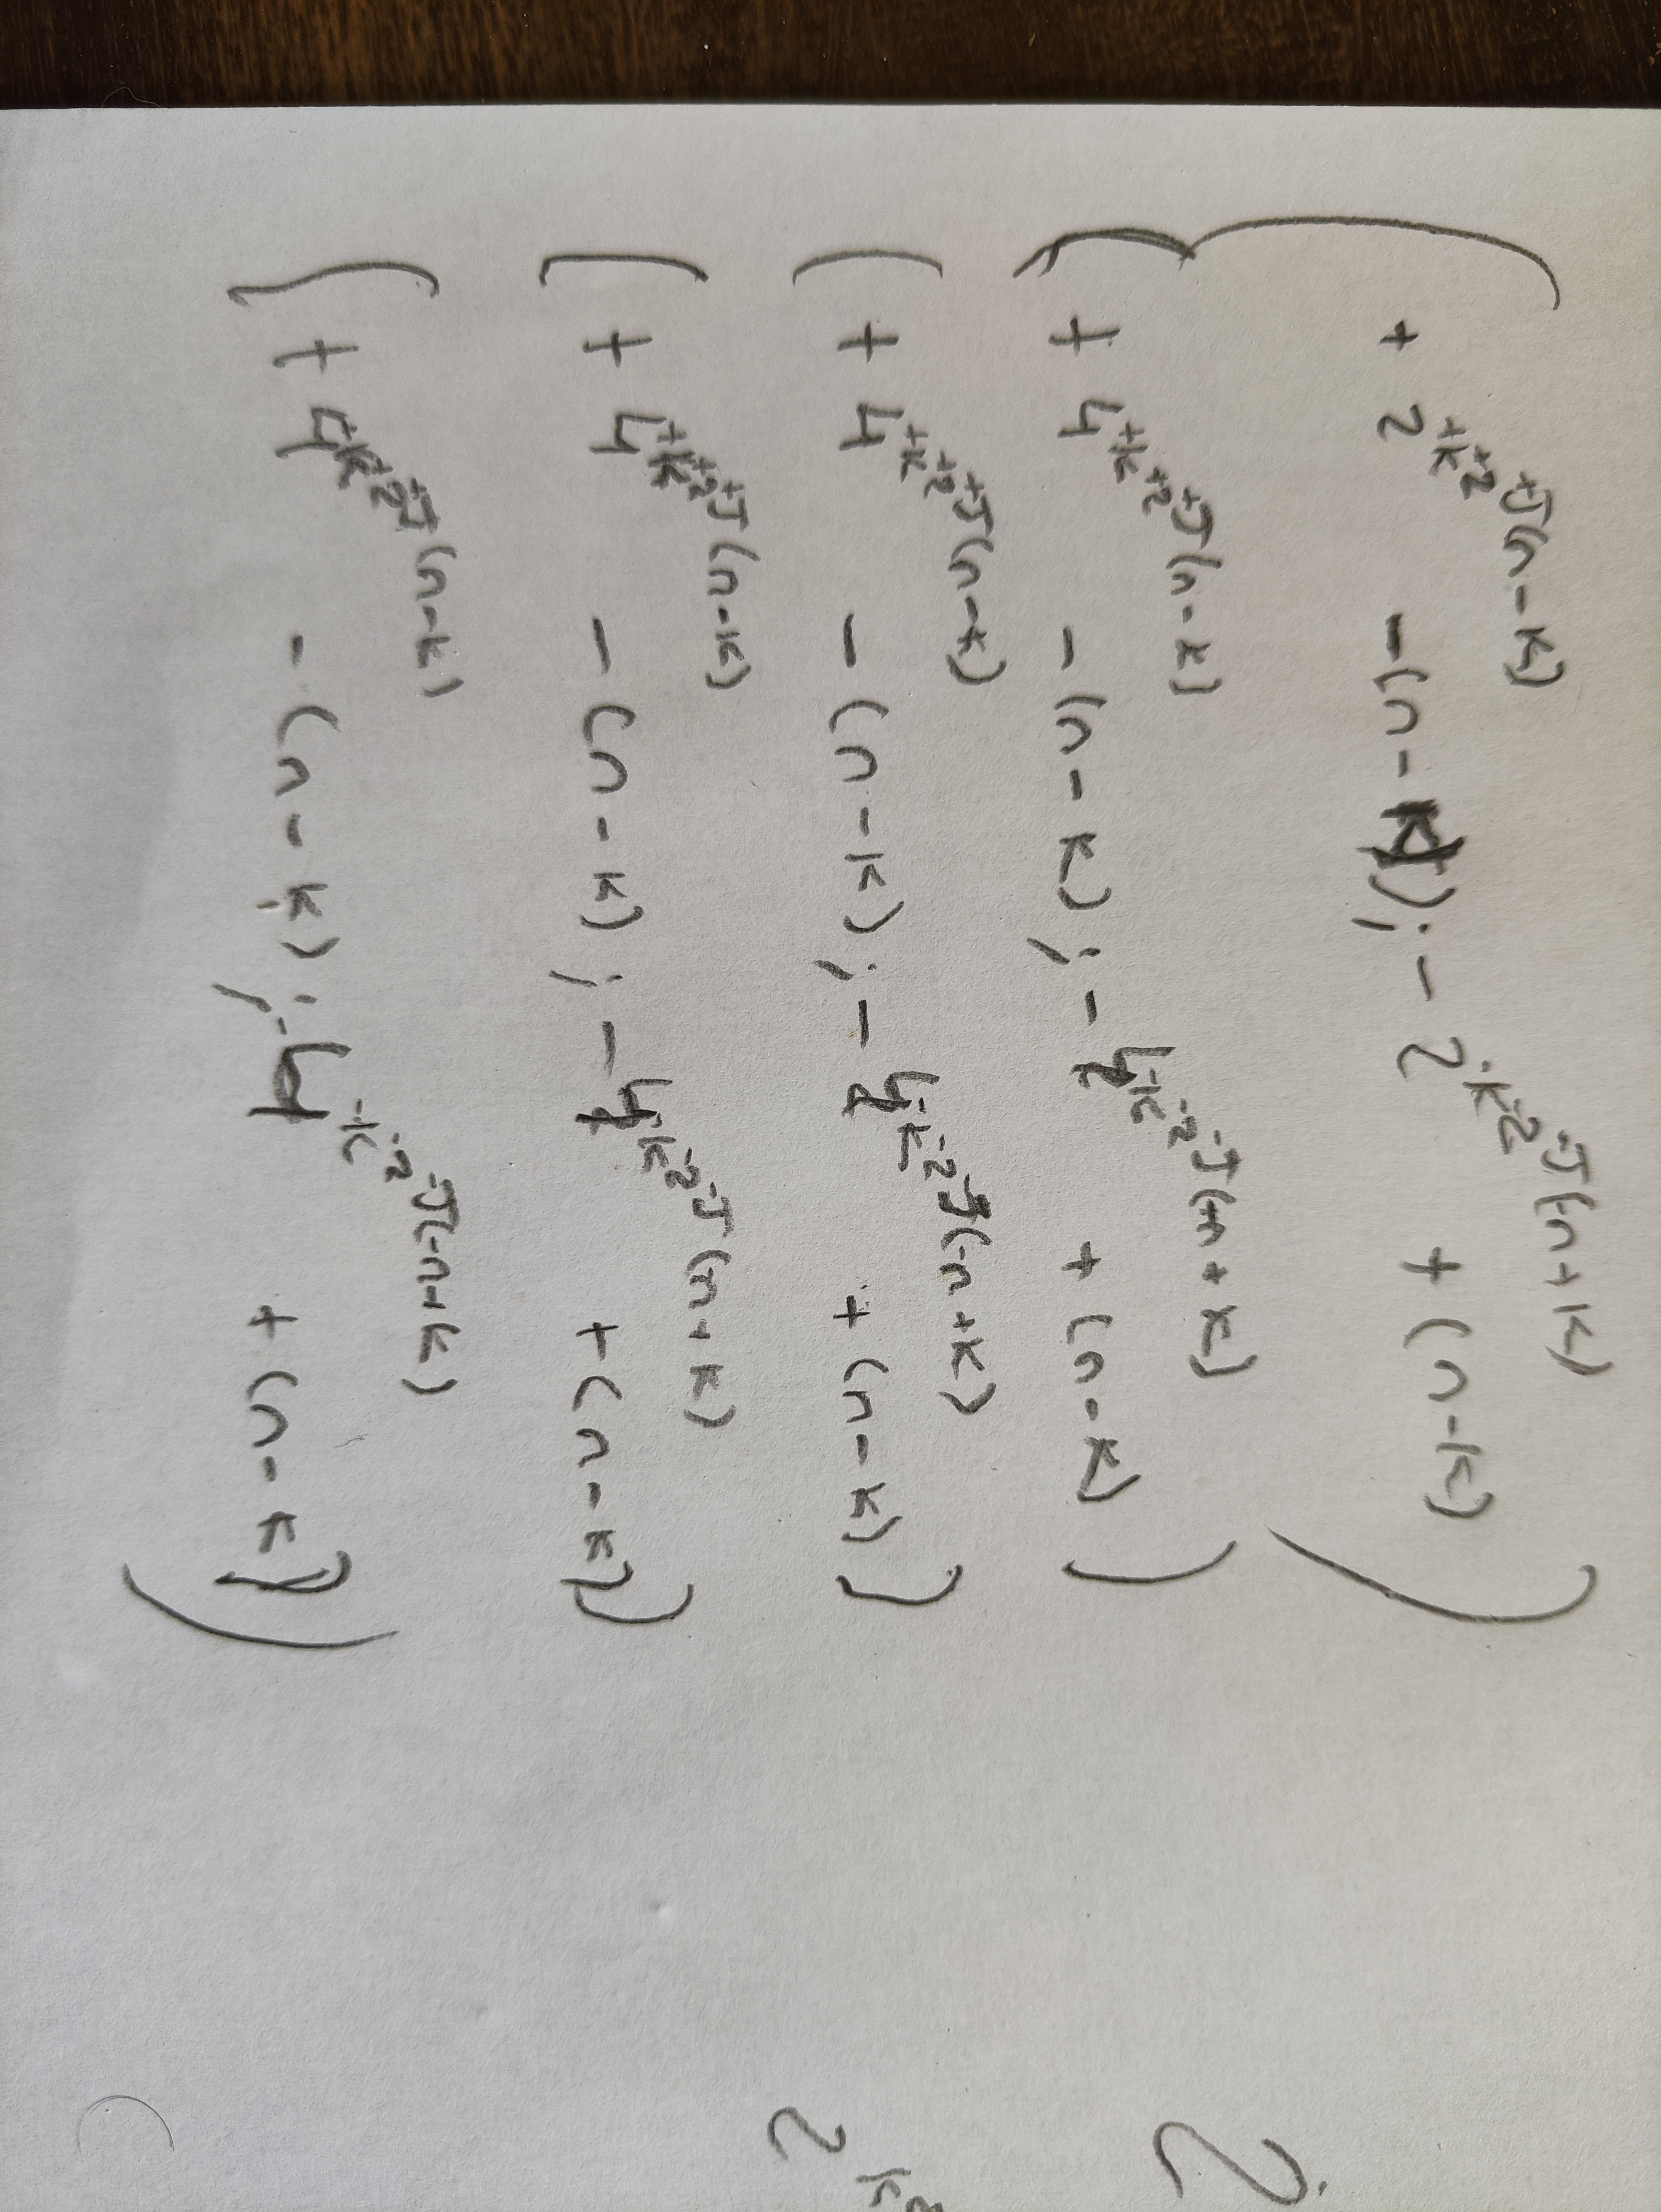 ( + 2^{+k^{+2^{+J(n-k)}}} - (n-k); - 2^{-k^{-2^{-J(-n+k)}}} + (n-k) )
( + 4^{+k^{+2^{+J(n-k)}}} - (n-k); - 4^{-k^{-2^{-J(+n+k)}}} + (n-k) )
( + 4^{+k^{+2^{+J(n-k)}}} - (n-k); - 4^{-k^{-2^{-J(-n+k)}}} + (n-k) )
( + 4^{+k^{+2^{+J(n-k)}}} - (n-k); - 4^{-k^{-2^{-J(+n+k)}}} + (n-k) )
( + 4^{+k^{+2^{+J(n-k)}}} - (n-k); - 4^{-k^{-2^{-J(-n+k)}}} + (n-k) ) )
2
2^{k